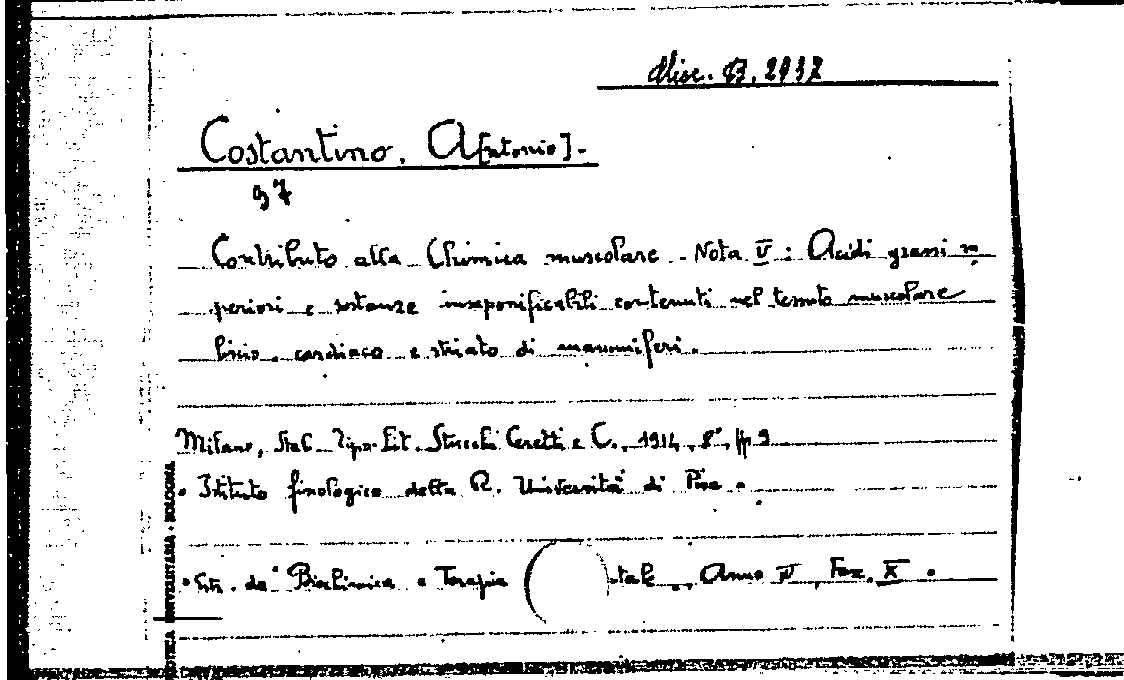 Misc. B. 2932
Costantino, A[ntonio].
97
Contributo alla Chimica muscolare - Nota V : Acidi grassi su
periori e sostanze insaponificabili contenuti nel tessuto muscolare
liscio, cardiaco e striato di mammiferi.
Milano, Stab. Tipo-Lit. Stucchi Ceretti e C., 1914, 8°, pp 9
Istituto fisiologico della R. Università di Pisa.
Estr. da "Biochimica e Terapia tale, Anno IV, Fasc. X.
BIBLIOTECA UNIVERSITARIA - BOLOGNA